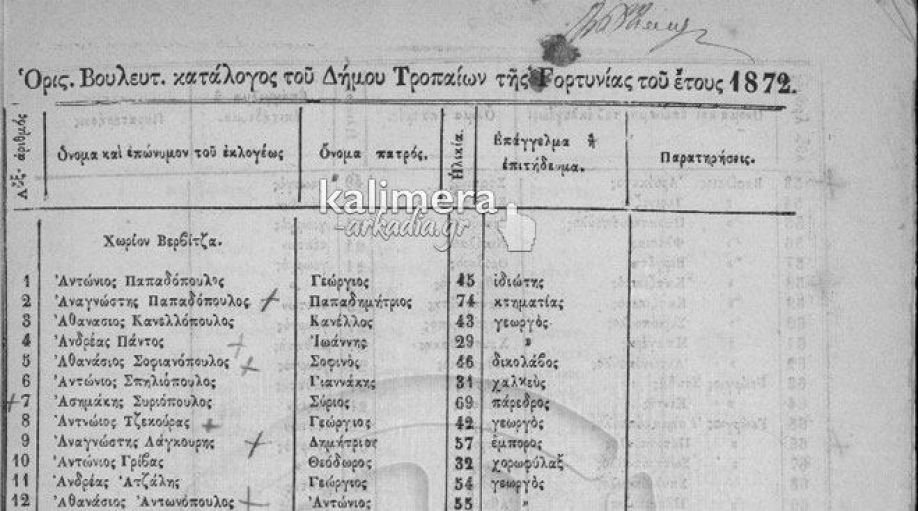 Ὁρις. Βουλευτ. κατάλογος τοῦ Δήμου Τροπαίων τῆς Γορτυνίας τοῦ ἔτους 1872.
Αὔξ. ἀριθμός
Ὄνομα καὶ ἐπώνυμον τοῦ ἐκλογέως
Ὄνομα πατρός.
Ἡλικία.
Ἐπάγγελμα ἢ ἐπιτήδευμα.
Παρατηρήσεις.
kalimera
arkadia.gr
Χωρίον Βερβίτζα.
1 Ἀντώνιος Παπαδόπουλος Γεώργιος 45 ἰδιώτης
2 Ἀναγνώστης Παπαδόπουλος Παπαδημήτριος 74 κτηματίας
3 Ἀθανασιος Κανελλόπουλος Κανέλλος 43 γεωργὸς
4 Ἀνδρέας Πάντος Ἰωάννης 29 »
5 Ἀθανάσιος Σοφιανόπουλος Σοφινὸς 46 δικολάβος
6 Ἀντώνιος Σπηλιόπουλος Γιαννάκης 31 χαλκεὺς
7 Ἀσημάκης Συριόπουλος Σύριος 69 πάρεδρος
8 Ἀντώνιος Τζεκούρας Γεώργιος 42 γεωργὸς
9 Ἀναγνώστης Λάγκουρης Δημήτριος 57 ἔμπορος
10 Ἀντώνιος Γρίβας Θεόδωρος 32 χοροφύλαξ
11 Ἀνδρέας Ἀτζάλης Γεώργιος 54 γεωργὸς
12 Ἀθανάσιος Ἀντωνόπουλος Ἀντώνιος 55 »